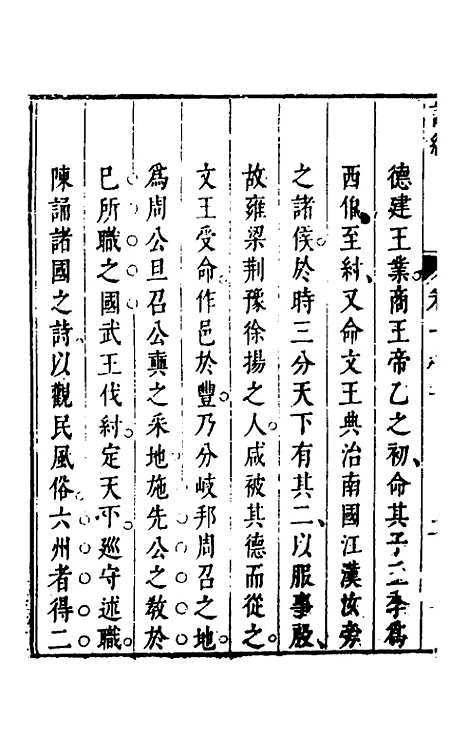 德建王業商王帝乙之初命其子王季爲
西伯至紂又命文王典治南國江漢汝旁
之諸侯於時三分天下有其二以服事殷
故雍梁荊豫徐揚之人咸被其德而從之
文王受命作邑於豐乃分岐邦周召之地
爲周公旦召公奭之采地施先公之教於
巳所職之國武王伐紂定天下巡守述職
陳誦諸國之詩以觀民風俗六州者得二